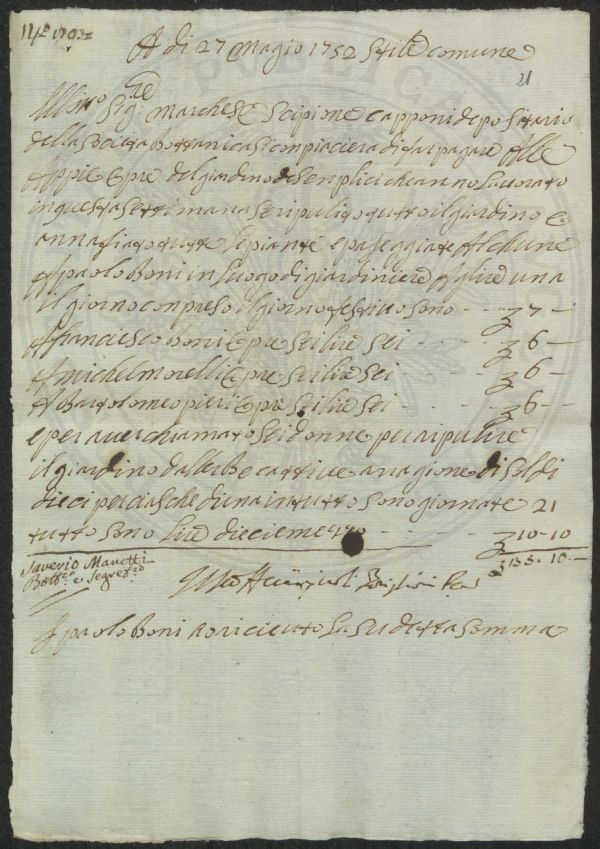 A di 27 Magio 1752 Stile comune
21
Ill.mo Sig.re Marchese Scipione capponi depositario
della Societa Bottanica Si conpiacera di far pagare Alle
Appie Opre del giardino de Senplici che anno Lavorato
in questa Settimana Se ripulito tutto il giardino e
annafiato tutte le piante e paseggiate Alchune
A paolo Boni in Luogo di giardiniere A lire una
il giorno conpreso il giorno festivo Sono - - - 7 -
A Franciesco Boni Opre Sei lire Sei - - - 6 -
A michel morelli Opre Sei lire Sei - - - 6 -
A Bartolomeo pieri Opre Sei lire Sei - - - 6 -
e per aver chiamato Sei donne per ripulire
il giardino dall erbe cattive a ragione di Soldi
dieci per ciascheduna in tutto Sono giornate 21
tutto Sono Lire dieci e mezzo - - - 10-10
35. 10. -
Saverio Manetti
Bott.co e Segret.io
Io paolo Boni o riceuto La Sudetta Somma
PUBLICA